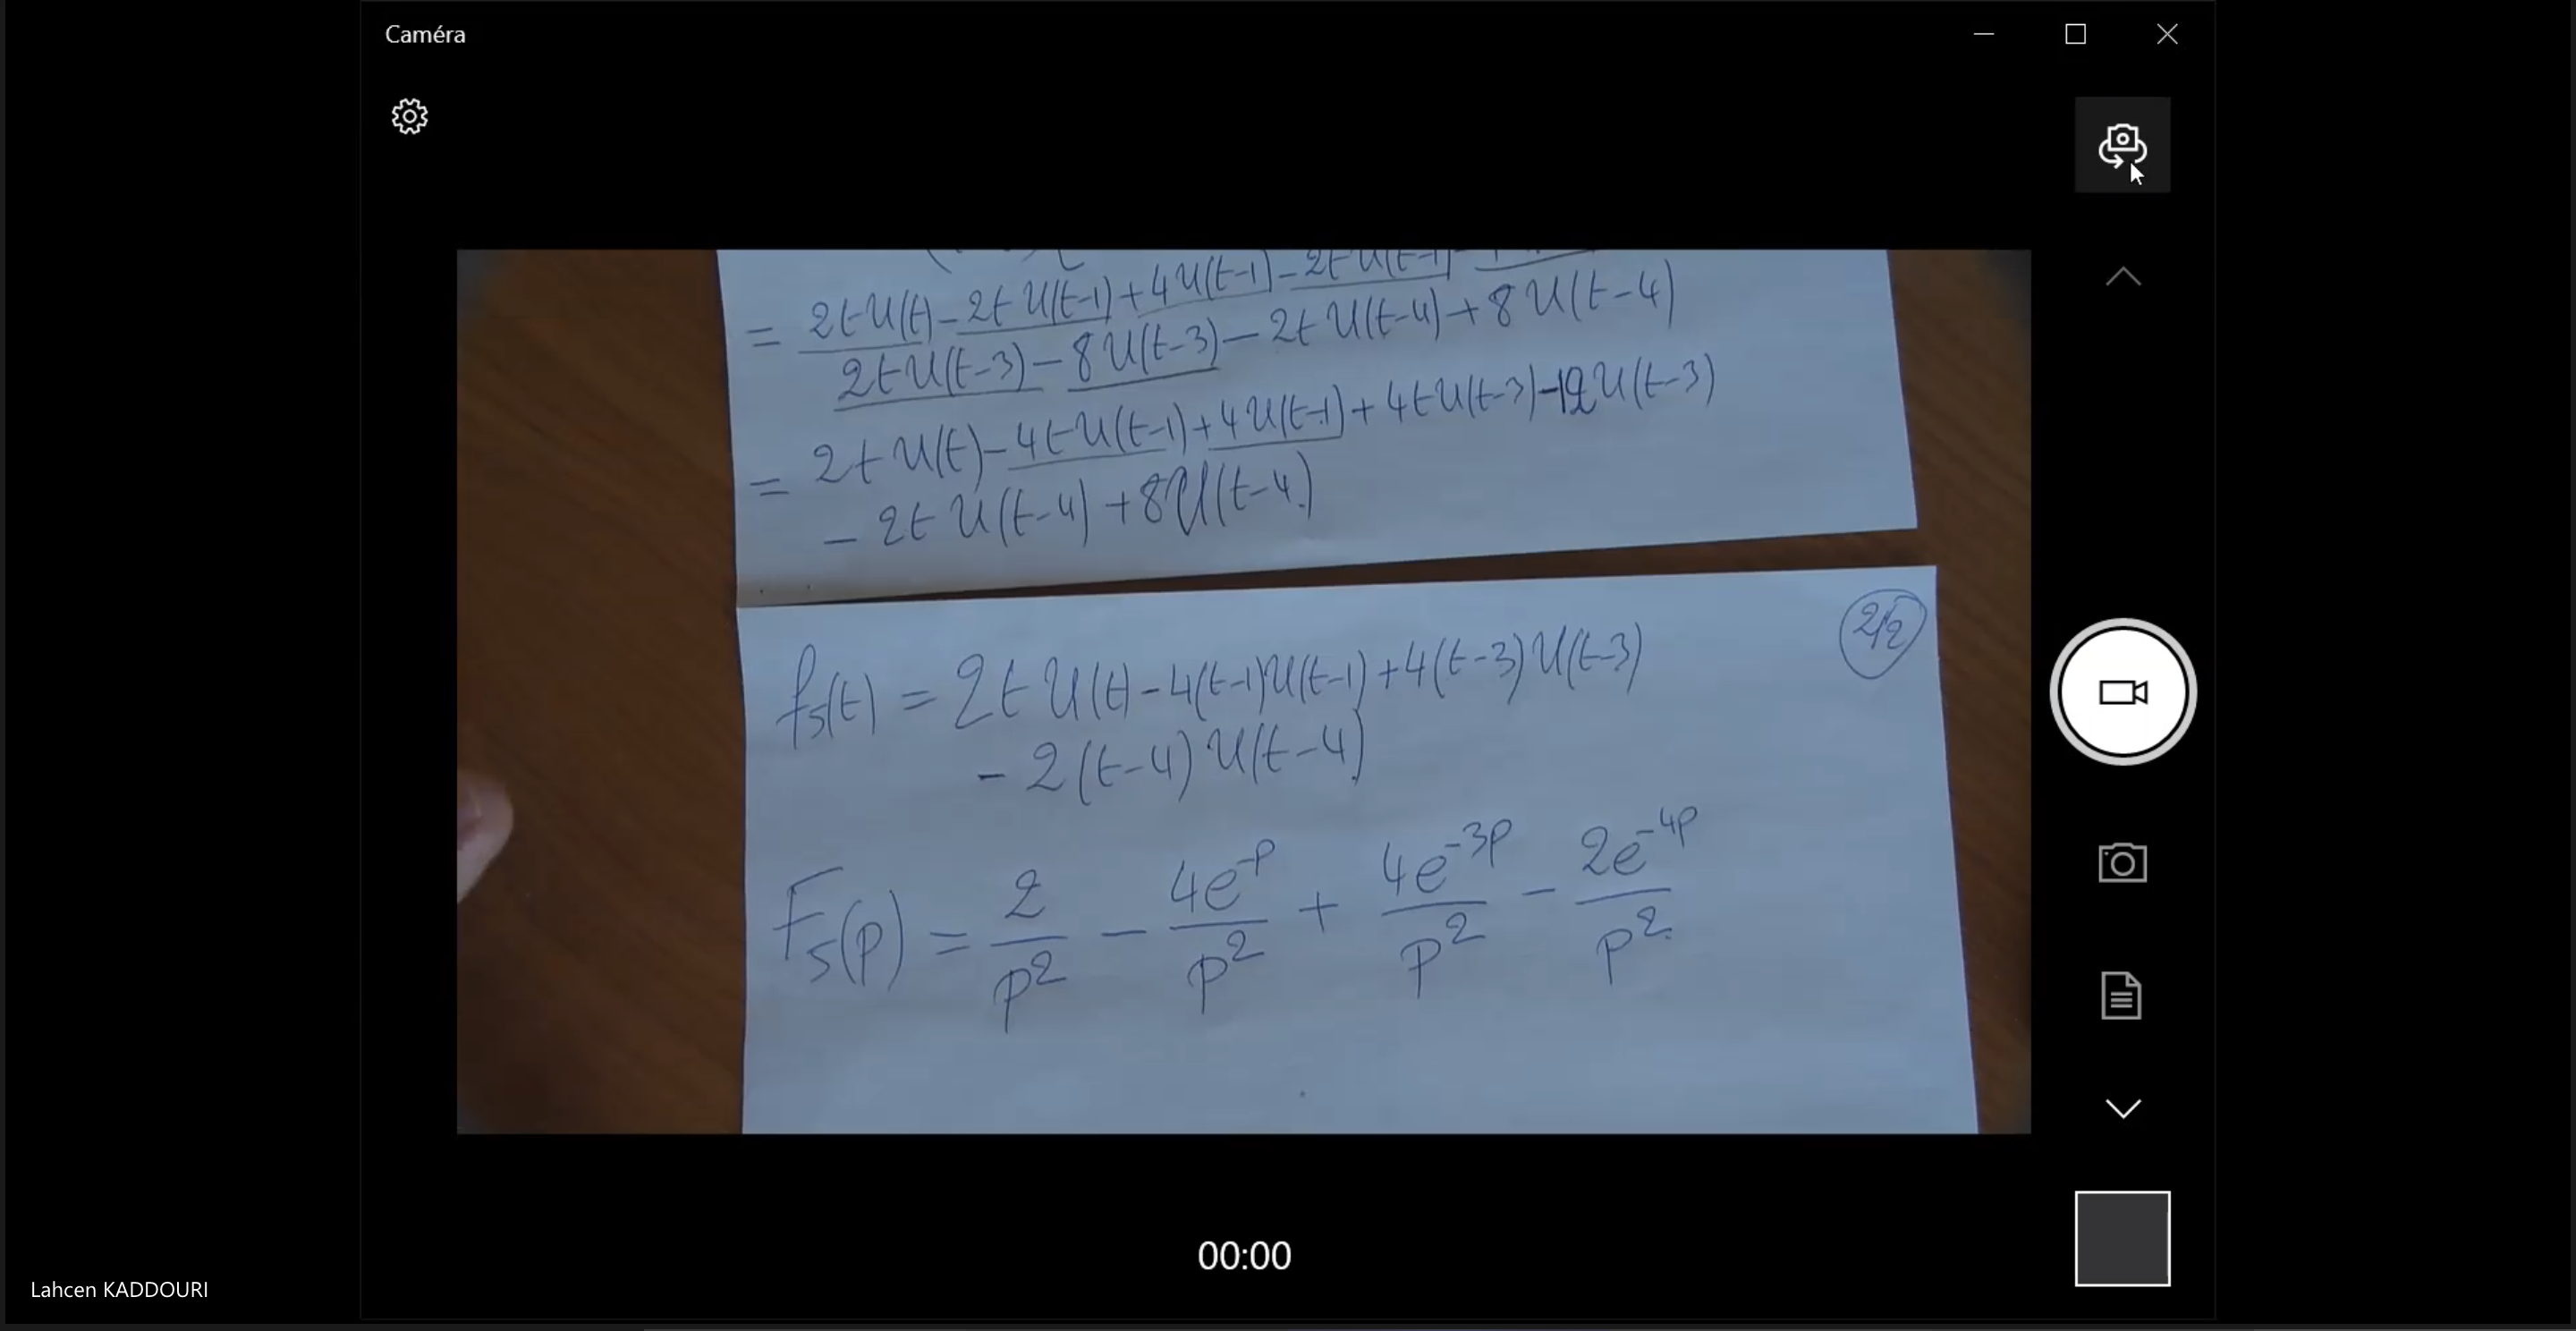 Caméra
= 2t U(t) - 2t U(t-1) + 4 U(t-1) - 2t U(t-1)
2t U(t-3) - 8 U(t-3) - 2t U(t-4) + 8 U(t-4)
= 2t U(t) - 4t U(t-1) + 4 U(t-1) + 4t U(t-3) - 12 U(t-3)
- 2t U(t-4) + 8 U(t-4)
2/2
f₅(t) = 2t U(t) - 4(t-1)U(t-1) + 4(t-3)U(t-3)
- 2(t-4) U(t-4)
F₅(p) = 2/p² - 4e^-p/p² + 4e^-3p/p² - 2e^-4p/p²
00:00
Lahcen KADDOURI